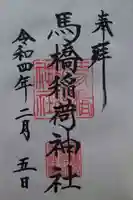 奉拝
馬橋稲荷神社
令和四年二月五日